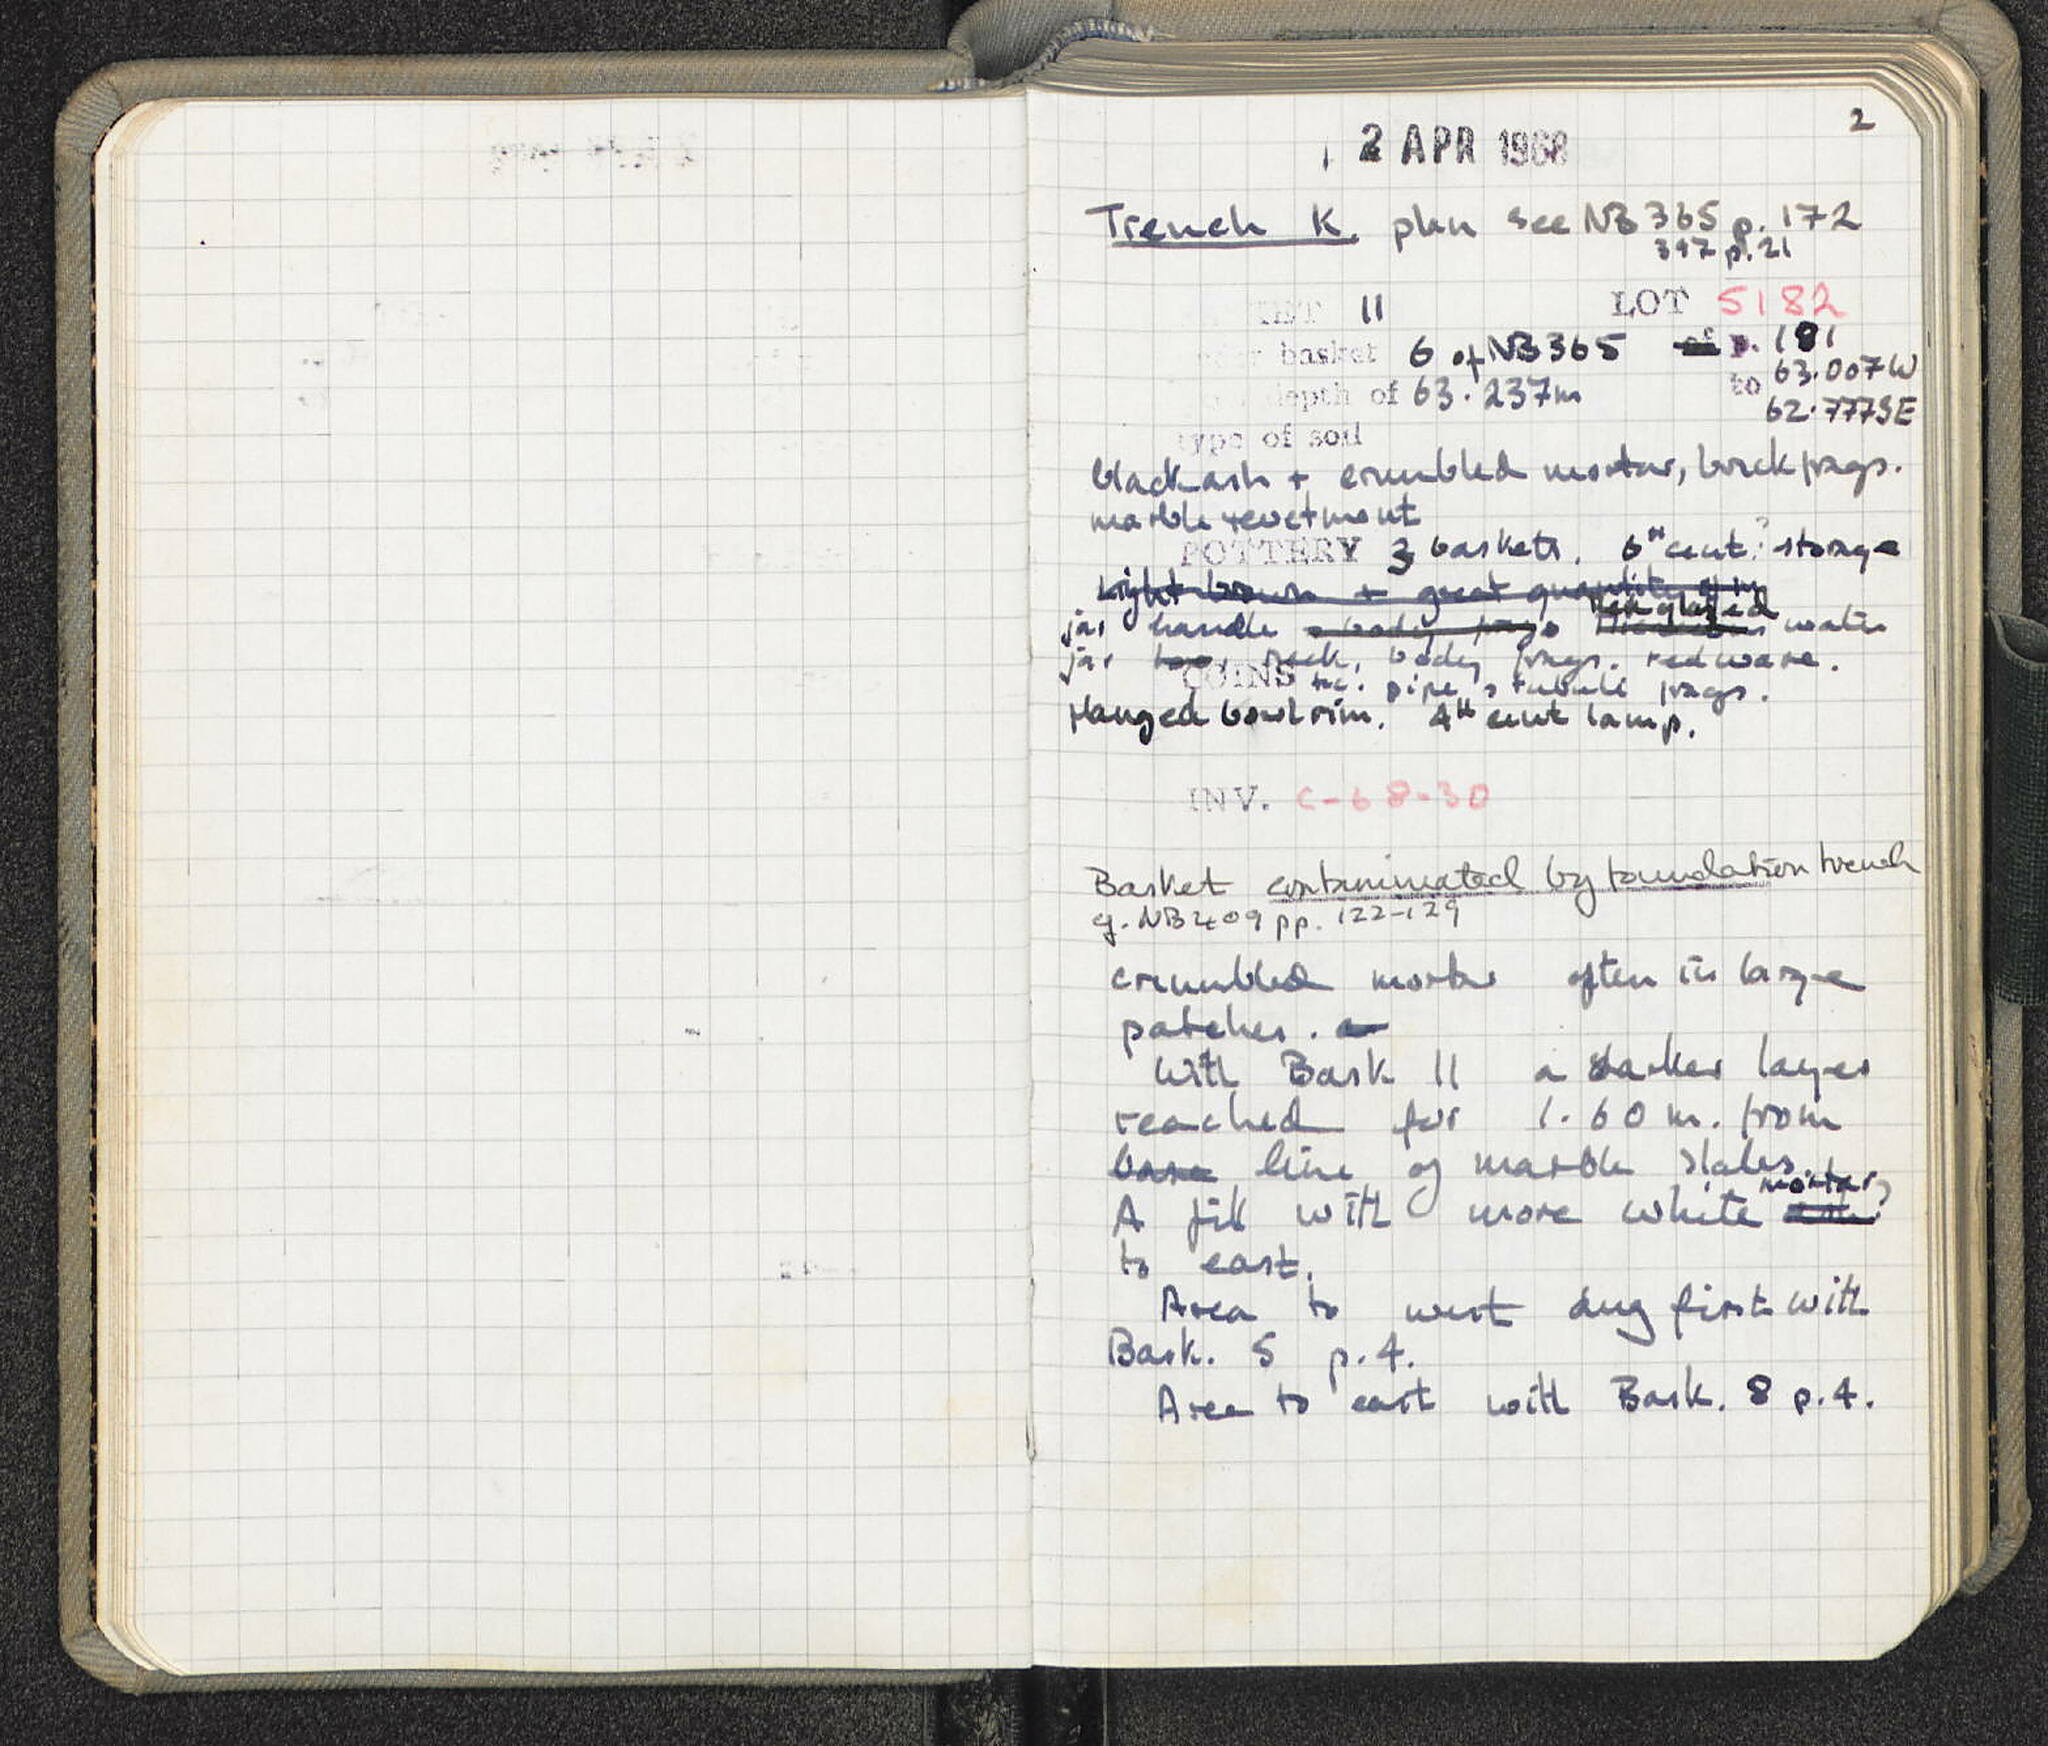 2
2 APR 1968
Trench K. plan see NB 365 p. 172
397 p. 21
11 LOT 5182
basket 6 of NB 365 p. 181
depth of 63.237m to 63.007W
62.777SE
type of soil
black ash + crumbled mortar, brick frags.
marble revetment
POTTERY 3 baskets. 6th cent.? storage
Light brown + great quantity of
jar handle body frags glazed water
jar neck, body frags. red ware.
COINS pipe, tubuli frags.
flanged bowl rim. 4th cent lamp.
INV. C-68-30
Basket contaminated by foundation trench
cf. NB 409 pp. 122-129
crumbled mortar often in large
patches.
With Bask 11 a darker layer
reached for 1.60 m. from
base line of marble slabs.
mortar,
A fill with more white
to east.
Area to west dug first with
Bask. 5 p. 4.
Area to east with Bask. 8 p. 4.